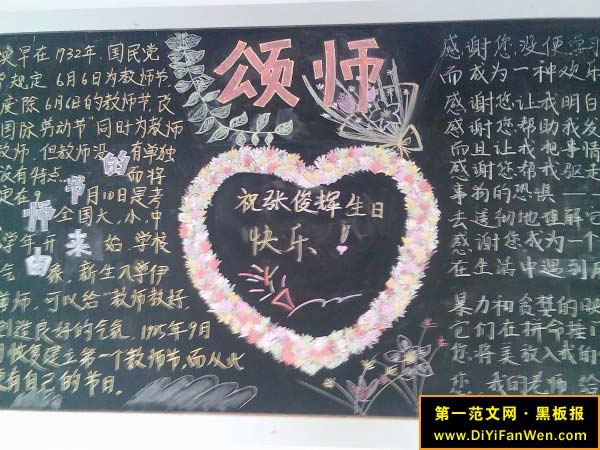 早在1932年，国民党
规定6月6日为教师节,
度除6月6日的教师节,改
国际劳动节"同时为教师
教师，但教师没有单独
没有特点。而将
定在 月10日是考
全国大，小，中
学年开始，学校
气象，新生入学伊
尊师，可以给"教师教好,
创造良好的气氛，1985年9月
恢复建立第一个教师节,而从此
有自己的节日。
师节的
由来
颂师
祝张俊辉生日
快乐！
感谢您没使学习
而成为一种欢乐
感谢您让我明白
感谢您帮助我发
而且让我把事情
感谢您帮我驱走
事物的恐惧——
去透彻地理解它
感谢您我为一个
在生活中遇到
暴力和贪婪的映
它们在拼命捶门
您将美放入我的
您，我的老师，给
第一范文网·黑板报
www.DiYiFanWen.com